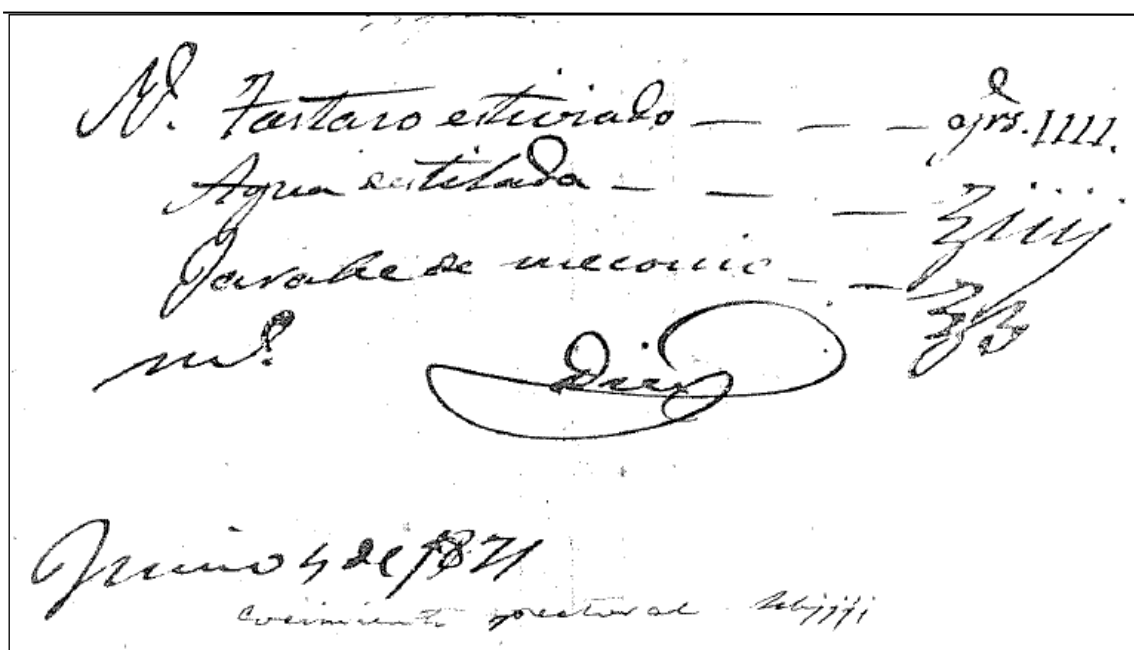 R. Tartaro estiviado — — — grs. IIII.
Agua destilada — — — ℥iiij
Jarabe de meconio — — ℥ß
m.
Diez
Junio 4 de 1871
Cocimiento pectoral